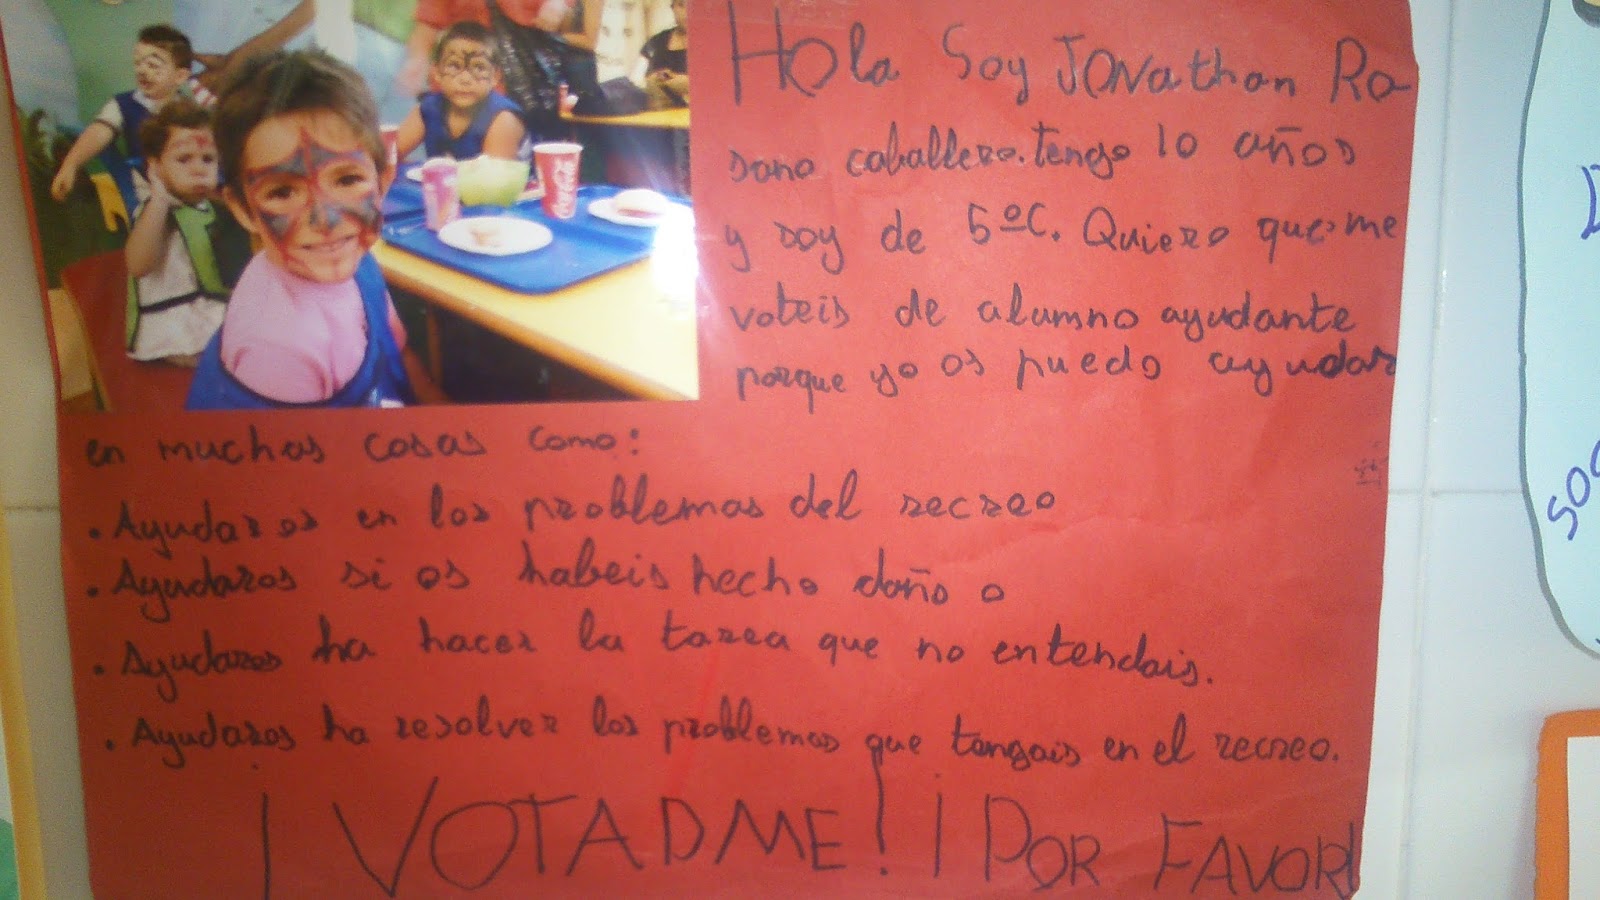 Hola Soy JONathan Ro
sano caballero. tengo 10 años
y soy de 5ºC. Quiero que me
voteis de alumno ayudante
porque yo os puedo ayudar
en muchas cosas como:
. Ayudaros en los problemas del recreo
. Ayudaros si os habeis hecho daño o
. Ayudaros ha hacer la tarea que no entendais.
. Ayudaros ha resolver los problemas que tengais en el recreo.
¡VOTADME! ¡POR FAVOR!
Coca-Cola